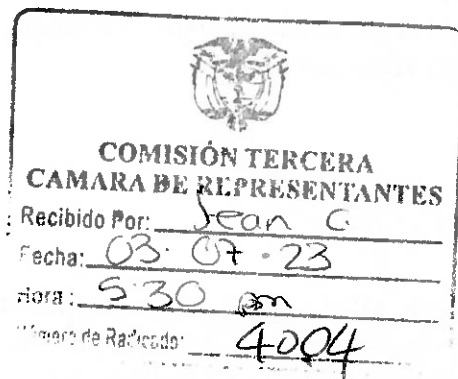 COMISIÓN TERCERA
CAMARA DE REPRESENTANTES
Recibido Por: Jean C
Fecha: 03. 07 - 23
Hora: 5 30 pm
Número de Radicado: 4004